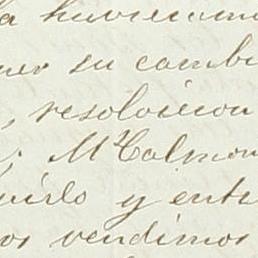 a hubieramo
ner su cambi
, resolvieron
. Mr Colmon
uirlo y ente
os vendimos